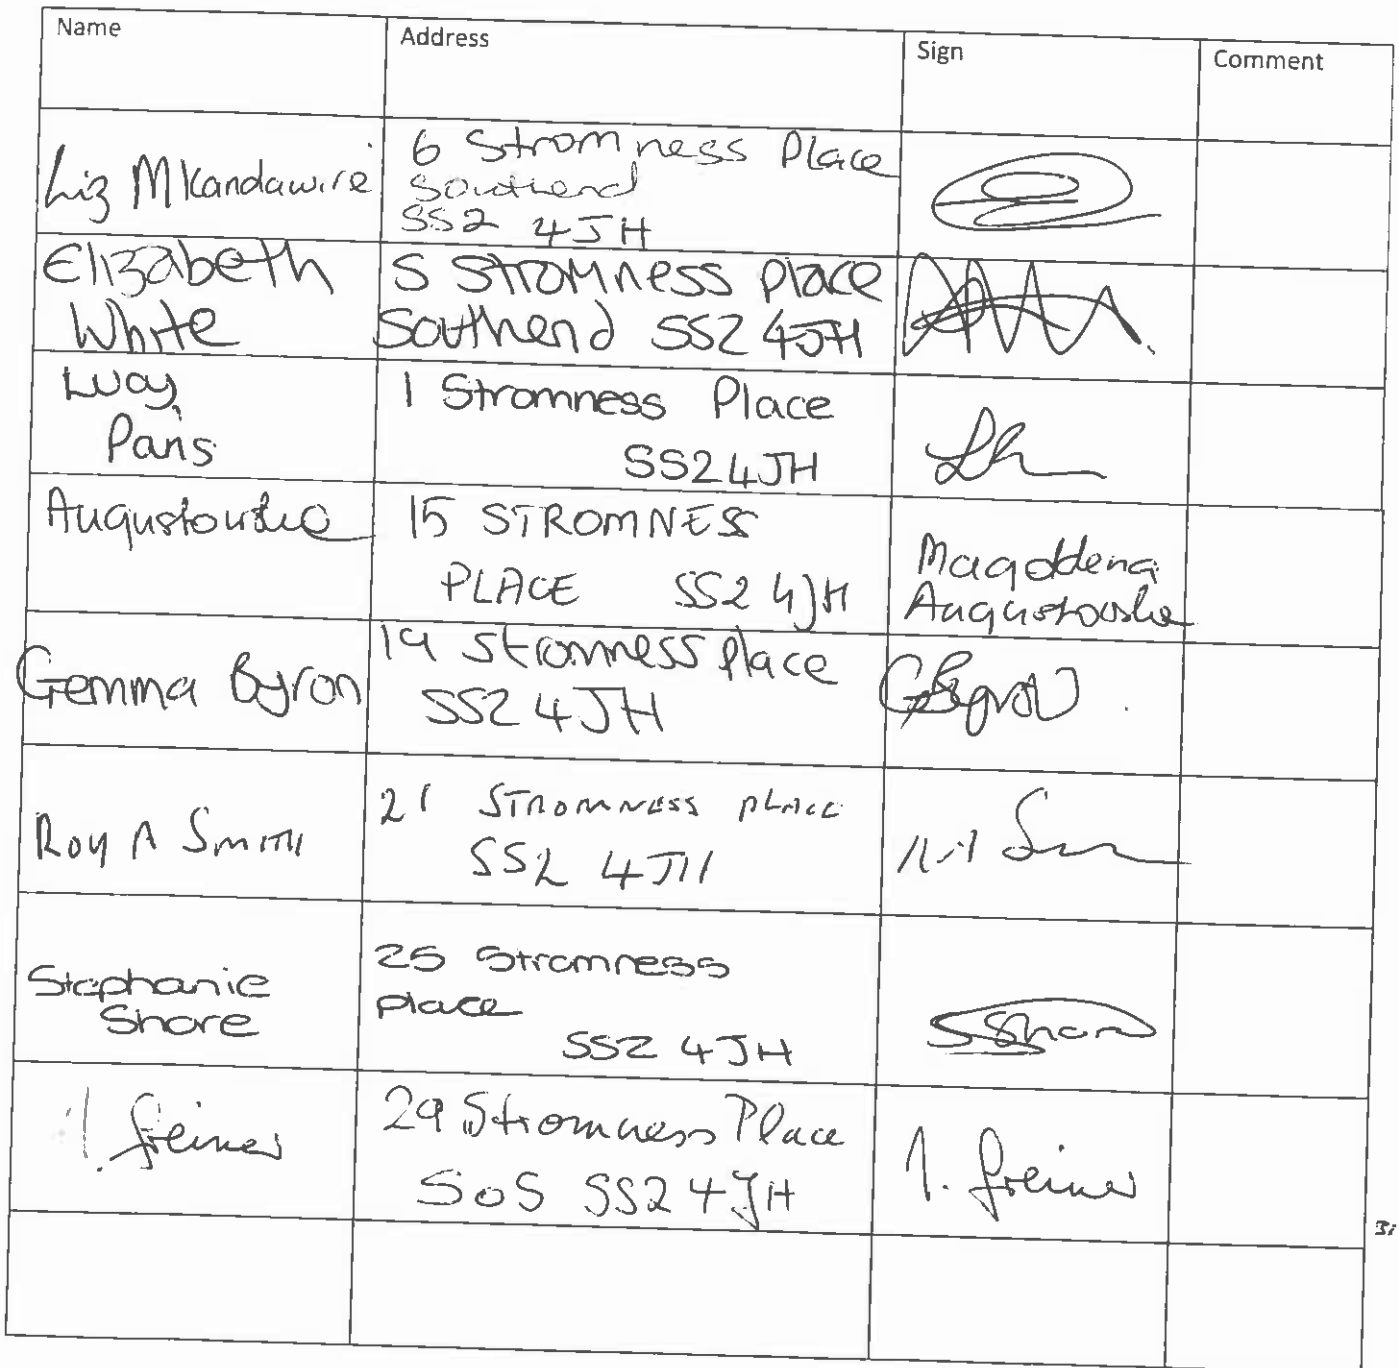 Name Address Sign Comment
Liz Mkandawire
6 Stromness Place
Southend
SS2 4JH
Elizabeth
White
5 Stromness place
Southend SS2 4JH
Lucy
Paris
1 Stromness Place
SS2 4JH
Augustowska
15 STROMNESS
PLACE SS2 4JH
Magdalena
Augustowska
Gemma Byron
19 Stromness place
SS2 4JH
GByron
Roy A Smith
21 STROMNESS PLACE
SS2 4JH
Stephanie
Shore
25 Stromness
place
SS2 4JH
SShore
1. Greiner
29 Stromness Place
SoS SS2 4JH
1. Greiner